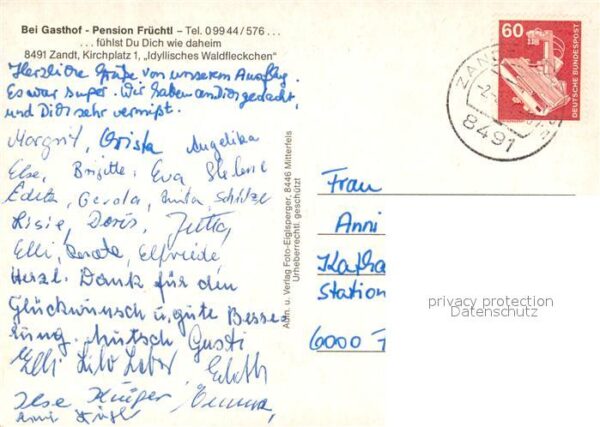 Bei Gasthof - Pension Früchtl – Tel. 0 99 44 / 576 . . .
. . . fühlst Du Dich wie daheim
8491 Zandt, Kirchplatz 1, „Idyllisches Waldfleckchen"
Herzliche Grüße von unserem Ausflug.
Es war super. Wir haben an Dich gedacht,
und Dich sehr vermißt.
Margrit, Christa Angelika
Else, Brigitte, Eva
Edeltr, Gerda, Anita,
Lisie, Doris, Jutta,
Elli, Renate, Elfriede,
Herzl. Dank für den
Glückwunsch u. gute Besse
rung. Gusti
Elli Edith
Ilse Krüger, Emma,
Aufn. u. Verlag Foto-Eiglsperger, 8446 Mitterfels
Urheberrechtl. geschützt
60
DEUTSCHE BUNDESPOST
ZAND
8491
Frau
Anni
Katha
Station
6000
privacy protection
Datenschutz